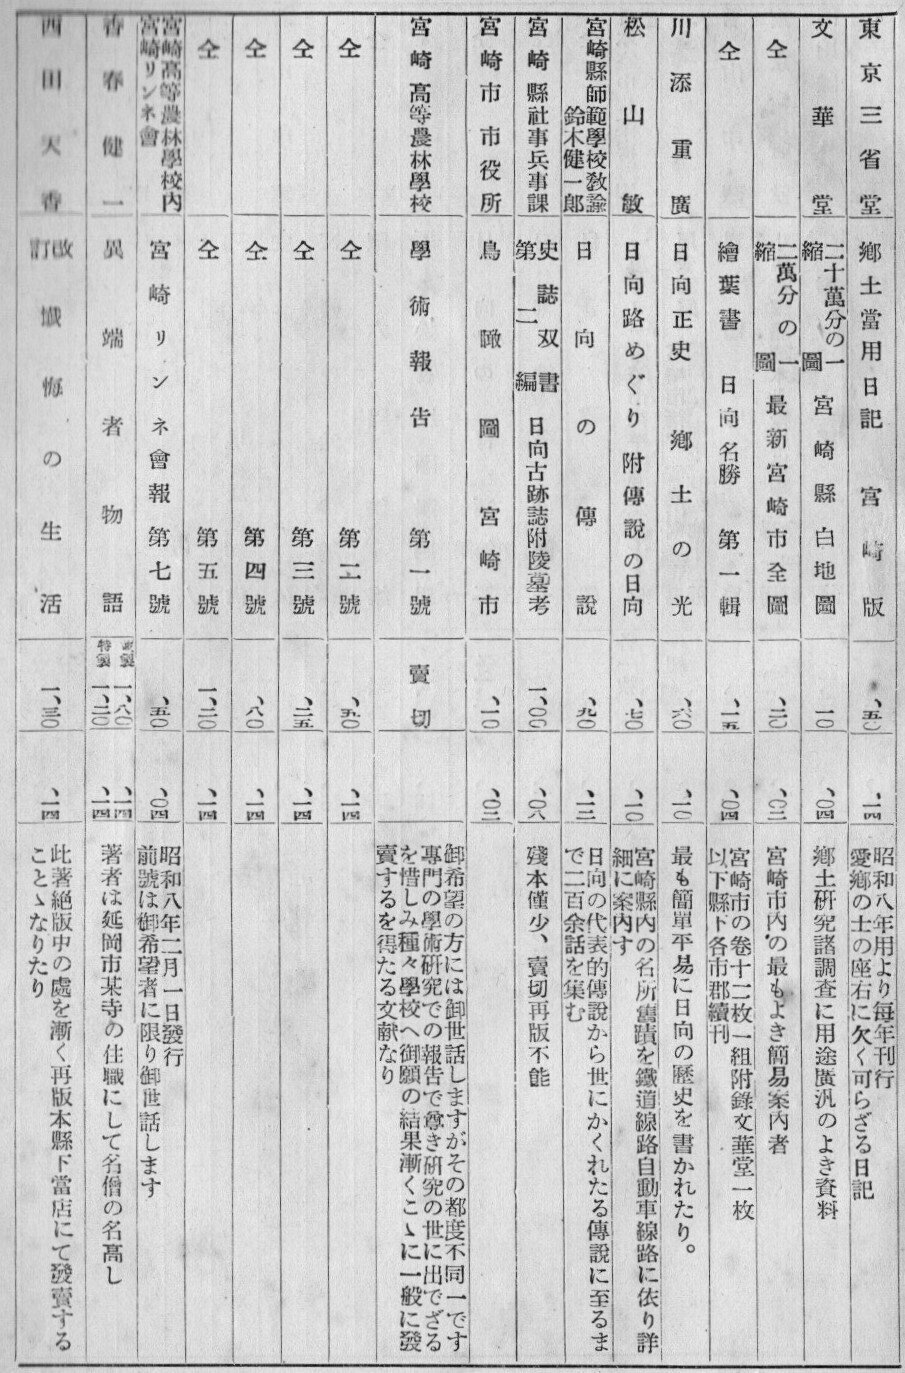 東京三省堂 鄕土當用日記 宮崎版 、五〇 、一四 昭和八年用より每年刊行
愛鄕の士の座右に欠く可らざる日記
文華堂 二十萬分の一
縮圖 宮崎縣白地圖 一〇 、〇四 鄕土硏究諸調査に用途廣汎のよき資料
仝 二萬分の一
縮圖 最新宮崎市全圖 、二〇 、〇二 宮崎市內の最もよき簡易案內者
仝 繪葉書 日向名勝 第一輯 、一五 、〇四 宮崎市の卷十二枚一組附錄文華堂一枚
以下縣下各市郡續刊
川添重廣 日向正史 鄕土の光 、六〇 、一〇 最も簡單平易に日向の歷史を書かれたり。
松山敏 日向路めぐり附傳說の日向 、七〇 、一〇 宮崎縣內の名所舊蹟を鐵道線路自動車線路に依り詳
細に案內す
宮崎縣師範學校敎諭
鈴木健一郎 日向の傳說 、九〇 、一二 日向の代表的傳說から世にかくれたる傳說に至るま
で二百余話を集む
宮崎縣社事兵事課 史誌双書
第二編 日向古跡誌附陵墓考 一、〇〇 、〇六 殘本僅少、賣切再版不能
宮崎市市役所 鳥瞰圖 宮崎市 、一〇 、〇二
宮崎高等農林學校 學術報吿 第一號 賣切 御希望の方には御世話しますがその都度不同一です
專門の學術硏究での報吿で尊き硏究の世に出でざる
を惜しみ種々學校へ御願の結果漸くこゝに一般に發
賣するを得たる文献なり
仝 仝 第二號 、五〇 、一四
仝 仝 第三號 、二五 、一四
仝 仝 第四號 、八〇 、一四
仝 仝 第五號 一、二〇 、一四
宮崎高等農林學校內
宮崎リンネ會 宮崎リンネ會報 第七號 、五〇 、〇四 昭和八年二月一日發行
前號は御希望者に限り御世話します
香春健一 異端者物語 製 一、八〇 、一四
特製 一、二〇 、一四 著者は延岡市某寺の住職にして名僧の名高し
西田天香 改訂 懺悔の生活 一、三〇 、一四 此著絕版中の處を漸く再版本縣下當店にて發賣する
ことゝなりたり